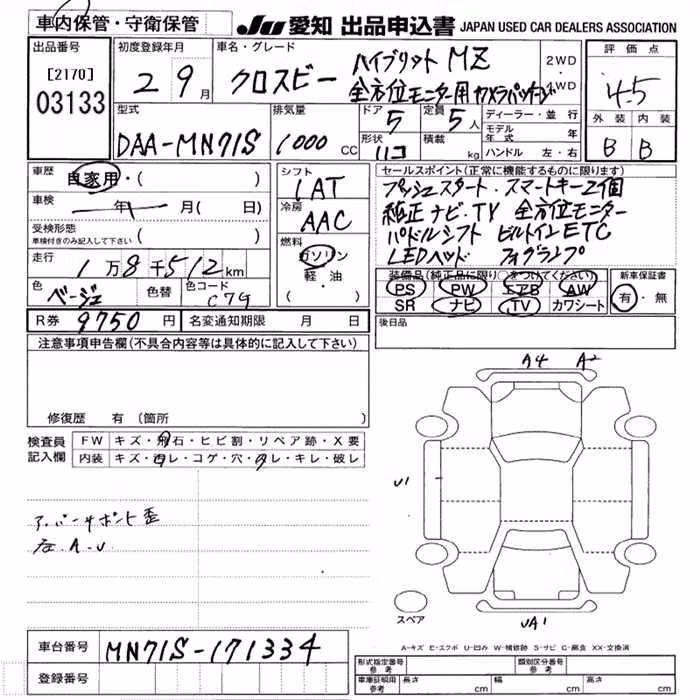 車内保管・守衛保管
JU 愛知 出品申込書 JAPAN USED CAR DEALERS ASSOCIATION
出品番号
[2170]
03133
初度登録年月
2 9月
車名・グレード
クロスビー
ハイブリット MZ
全方位モニター用カメラパッケージ
2WD
・
4WD
評価点
4.5
外装 内装
B B
型式
DAA-MN71S
排気量
1000 CC
ドア 5
形状
定員 5人
積載 kg
ディーラー・並行
モデル年式 年
ハンドル 左・右
車歴 自家用・( )
車検 年 月( 日)
受検形態
車検付きのみ記入して下さい ( )
走行 1万8千512km
色 ベージュ 色替 色コード
シフト
1AT
冷房
AAC
燃料
ガソリン
軽・油
( ・ )
セールスポイント(正常に機能するものに限ります)
プッシュスタート・スマートキー2個
純正ナビ・TV 全方位モニター
パドルシフト ビルトインETC
LEDヘッド フォグランプ
装備品(純正品に限り○をつけてください) 新車保証書
PS PW エアB AW
SR ナビ TV カワシート
有・無
R券 9750円 名変通知期限 月 日
後日品
注意事項申告欄(不具合内容等は具体的に記入して下さい)
修復歴 有 (箇所 )
検査員記入欄
FW キズ・飛石・ヒビ割・リペア跡・X要
内装 キズ・ヨゴレ・コゲ・穴・スレ・キレ・破レ
A4 A2
U1
アッパーサポート歪
左.A.U
スペア
UA1
A-キズ E-エクボ U-凹み W-補修跡 S-サビ C-腐食 XX-交換済
車台番号 MN71S-171334
登録番号
形式指定番号 参考
類別区分番号 参考
車庫証明用 参考
長さ cm 幅 cm 高さ cm